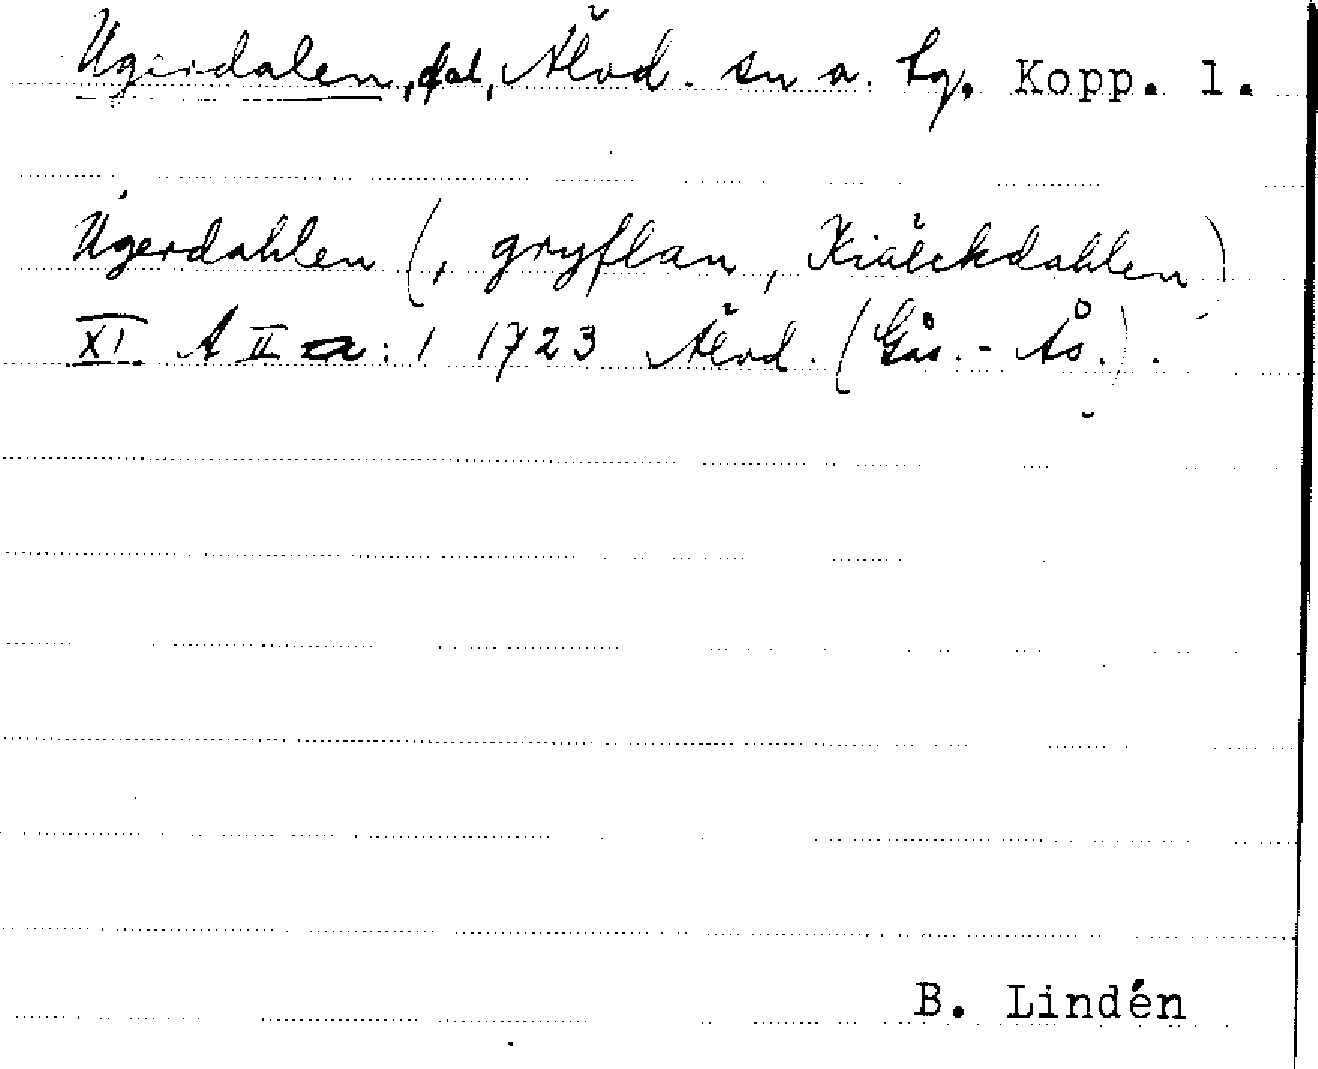 Ugerdalen, dal, Älvd. sn o. tg. Kopp. l.
Ugerdahlen (, gryflan, Kiälckdahlen)
XI. A II a: 1 1723 Älvd. (Gås.- Ås.).
B. Lindén